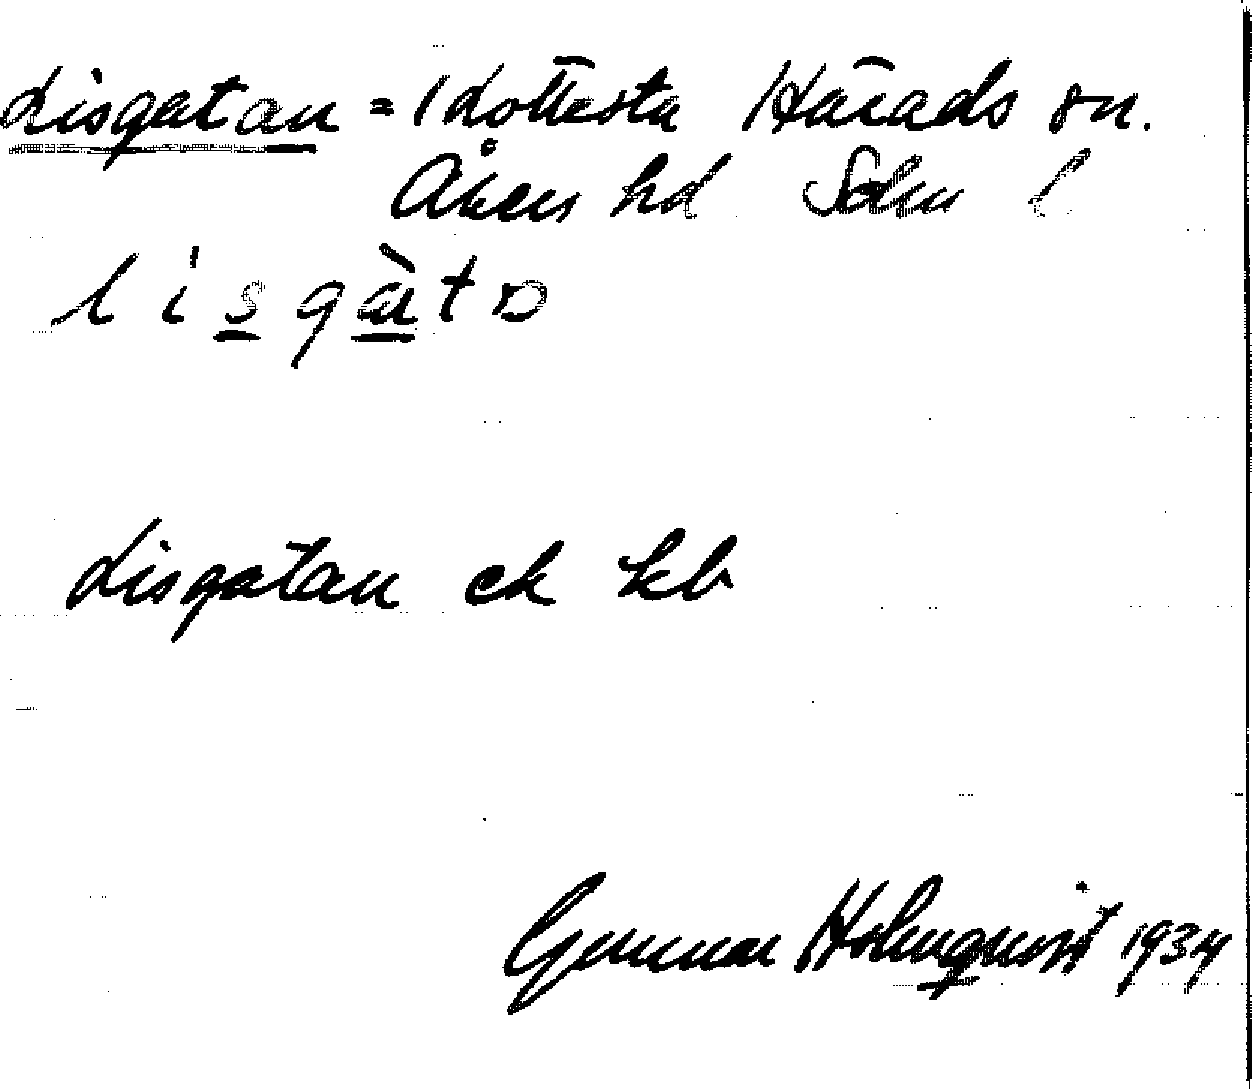 Lisgatan = 1 Lottesta Härads sn.
Åkers hd Sdm l
l i s g à t ɒ
Lisgatan ek kb
Gunnar Holmqvist 1934